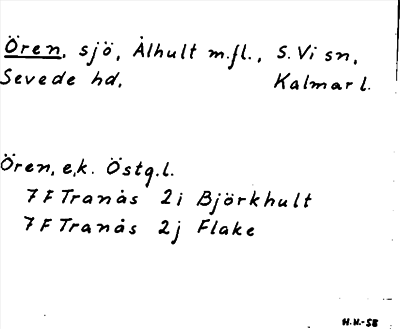 Ören, sjö, Ålhult m.fl., S. Vi sn,
Sevede hd, Kalmar l.
Ören, e.k. Östg.l.
7 F Tranås 2i Björkhult
7 F Tranås 2j Flake
H.H.-58